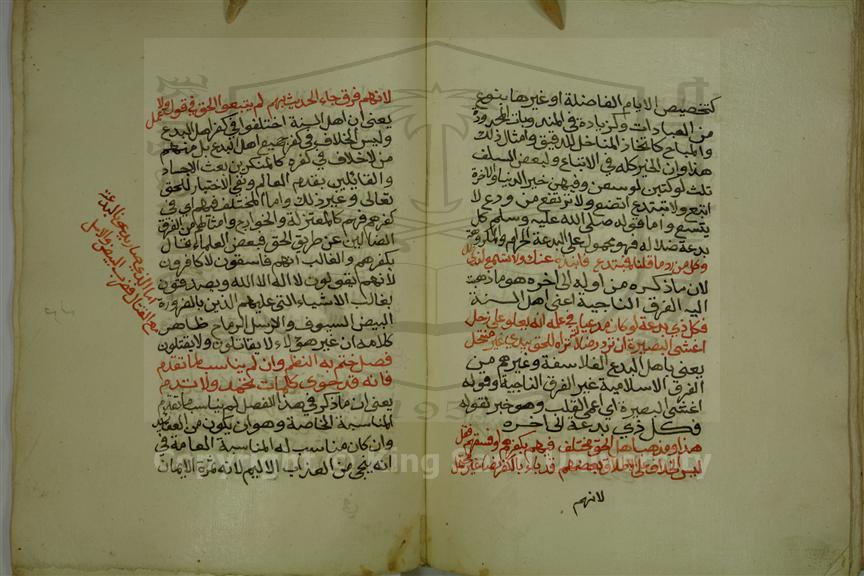 كتخصيص الايام الفاضلة او غيرها بنوع
من العبادات وكزيادة في المندوبات المحدودة
والمباح كاتخاذ المناخل للدقيق وامثال ذلك
هذا وان الخير كله في الاتباع ولبعض السلف
ثلث لو كتبن لوسعن وفيهن خير الدنيا والاخرة
اتبع ولا تبتدع اتضع ولا ترتفع من ورع لا
يتسع واما قوله صلى الله عليه وسلم كل
بدعة ضلالة فهو محمول على البدعة الحرام والمكروهة
وكل من رد ما قلنا فمبتدع فانبذه عنك ولا
لان ما ذكره من اوله الى اخره هو ما ذهبت
اليه الفرق الناجية اعني اهل السنة
فكل ذي بدعة لو كان مدعيا في علمه انه يعلو على زحل
اعشى البصيرة ان تردد ضلالا تراه للحق يبدي غير منتحل
يعني باهل البدع الفلاسفة وغيرهم من
الفرق الاسلامية غير الفرق الناجية وقوله
اعشى البصيرة اي اعمى القلب وهو خبر لقوله
فكل ذي بدعة الى اخره
هذا ومذهب اهل الحق مختلف فيهم بكفرهم او فسقهم فقل
ليس الخلاف على الاطلاق بعضهم قد باء بالكفر
لانهم
لانهم فرق جاء الحديث بهم لم يتبعوا الحق في قول ولا عمل
يعني ان اهل السنة اختلفوا في كفر اهل البدع
وليس الخلاف في كفر جميع اهل البدع بل منهم
من لا خلاف في كفره كالمنكرين لبعث الاجساد
والقائلين بقدم العالم ونفي الاختيار للحق
تعالى وغير ذلك واما المختلف فيهم اي في
كفرهم فهم كالمعتزلة والخوارج وامثالهم من الفرق
الضالين عن طريق الحق فبعض العلماء قال
بكفرهم والغالب انهم فاسقون لا كافرون
لانهم يقولون لا اله الا الله ويصدقون
بغالب الاشياء التي علمهم الدين بالضرورة
البيض السيوف والاسل الرماح ظاهر
كلامه ان غير هؤلاء لا يقاتلون ولا يقتلون
فصل ختم به النظم وان لم يناسب لما تقدم
فانه قد حوى كلمات تحمد ولا تذم
يعني ان ما ذكر في هذا الفصل لم يناسب ما تقدم
المناسبة الخاصة وهو ان يكون من العقائد
وان كان مناسب له المناسبة العامة في
انه ينجي من العذاب الاليم لانه ثمرة الايمان
اما الذي صار يدعونا لبدعته
مع القتال فضرب البيض والاسل
1957
Copyright © King Saud University